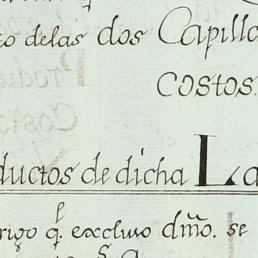 to delas dos Capillo
COSTOS.
ductos de dicha La
rigo q. excluso dmõ. se